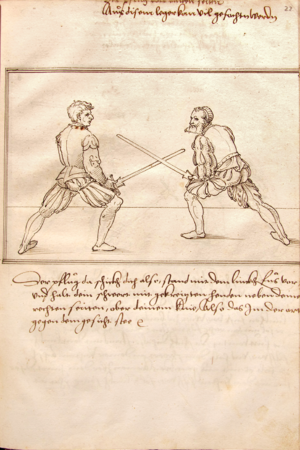 Auß disem leger kan vil gefochtn werden
Der pflug da schickh dich also, stand mit dem linckh fuß vor
vnd halt dein schwert mit gekreitzten henden neben deiner
rechten seiten, vber deinem knie, Also das Im der ort
gegen dem gesicht stee